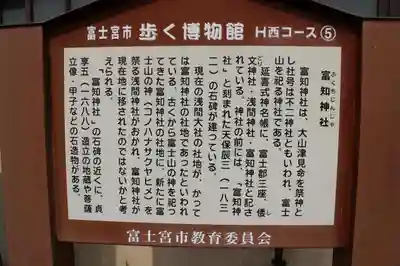 富士宮市 歩く博物館 H西コース⑤
ふくちじんじゃ
富知神社
富知神社は、大山津見命を祭神と
し社号は不二神社ともいわれ、富士
山を祀る神社である。
延喜式神名帳に、富士郡三座、倭
文神社・浅間神社・富知神社と記さ
れている。神社の前には、「富知神
社」と刻まれた天保辰三（一八三
二）の石碑が建っている。
現在の浅間大社の社地が、かつて
は富知神社の社地であったといわれ
ている。古くから富士山の神を祀っ
てきた富知神社の社地に、新たに富
士山の神（コノハナサクヤヒメ）を
祭る浅間神社がおかれ、富知神社が
現在地に移されたのではないかと考
えられる。
「富知神社」の石碑の近くに、貞
享五（一六八八）造立の地蔵や菩薩
立像・甲子などの石造物がある。
富士宮市教育委員会